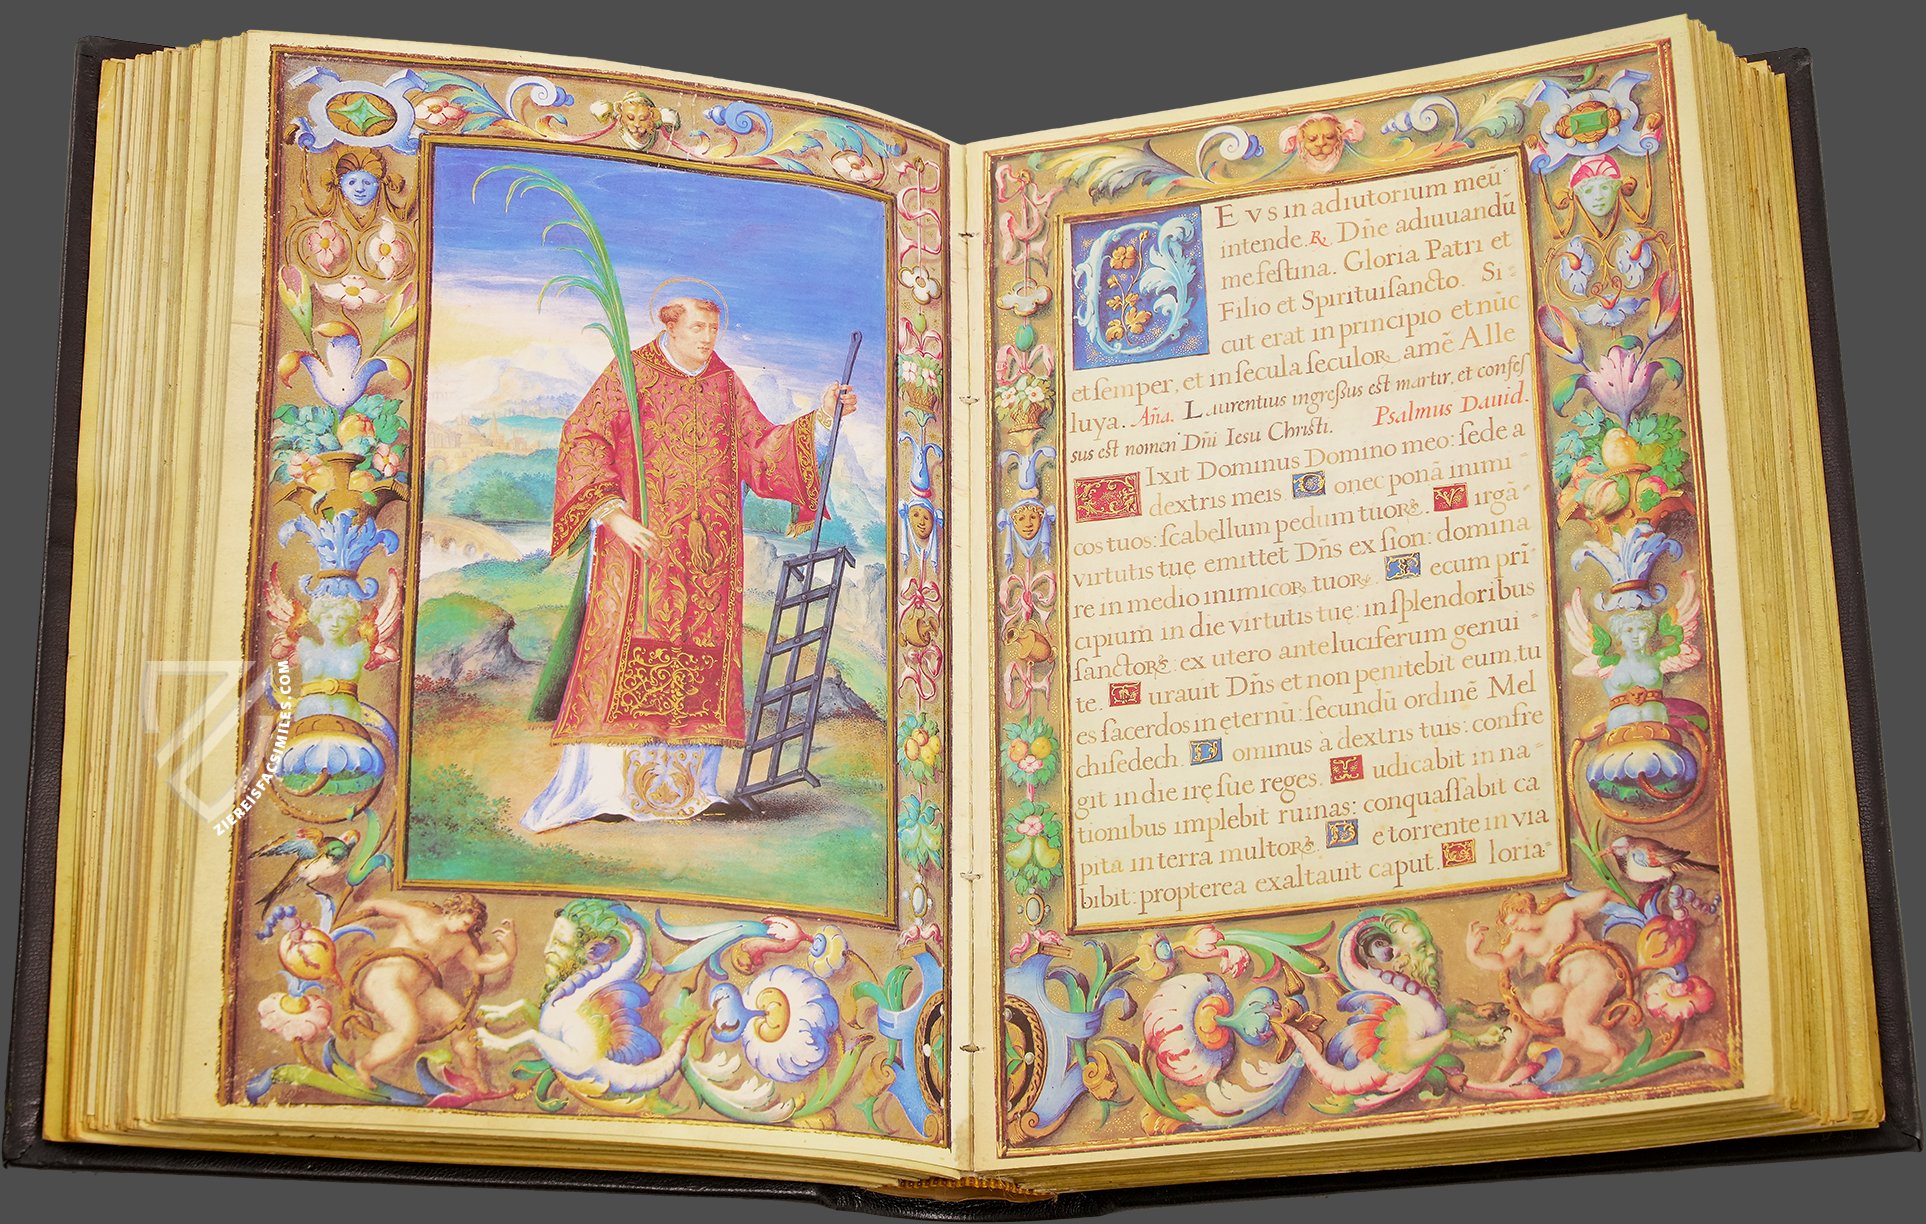 ZIEREISFACSIMILES.COM
DEVS in adiutorium meū
intende. R. Dñe adiuuandū
me festina. Gloria Patri et
Filio et Spiritui sancto. Si-
cut erat in principio et nūc
et semper, et in secula seculoR, amē Alle
luya. Aña. Laurentius ingressus est martir, et confes
sus est nomen Dñi Iesu Christi. Psalmus Dauid.
DIXIT Dominus Domino meo: sede a
dextris meis. Donec ponā inimi-
cos tuos: scabellum pedum tuoR. Virgā-
virtutis tuę emittet Dñs ex sion: domina
re in medio inimicoR tuoR. Tecum pri
cipium in die virtutis tuę: in splendoribus
sanctoR: ex utero ante luciferum genui-
te. Iurauit Dñs et non penitebit eum, tu
es sacerdos in ęternū: secundū ordinē Mel
chisedech. Dominus à dextris tuis: confre
git in die irę sue reges. Iudicabit in na-
tionibus implebit ruinas: conquassabit ca
pita in terra multoR. De torrente in via
bibit: propterea exaltauit caput. Gloria-